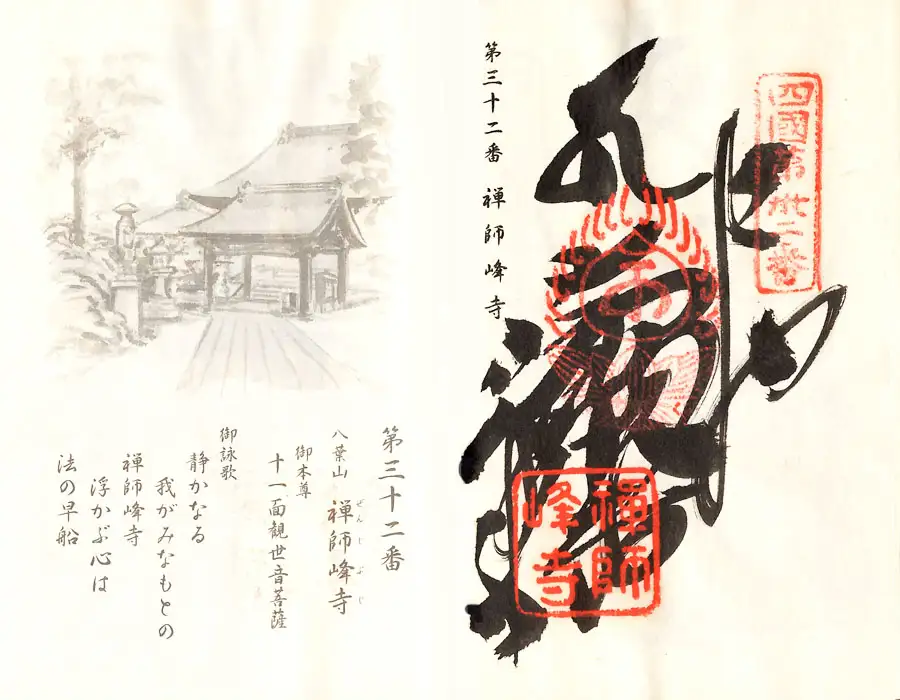 四國第卅二番
禪師
峰寺
第三十二番 禅師峰寺
第三十二番
八葉山 禅師峰寺
ぜんじぶじ
御本尊
十一面観世音菩薩
御詠歌
静かなる
我がみなもとの
禅師峰寺
浮かぶ心は
法の早船